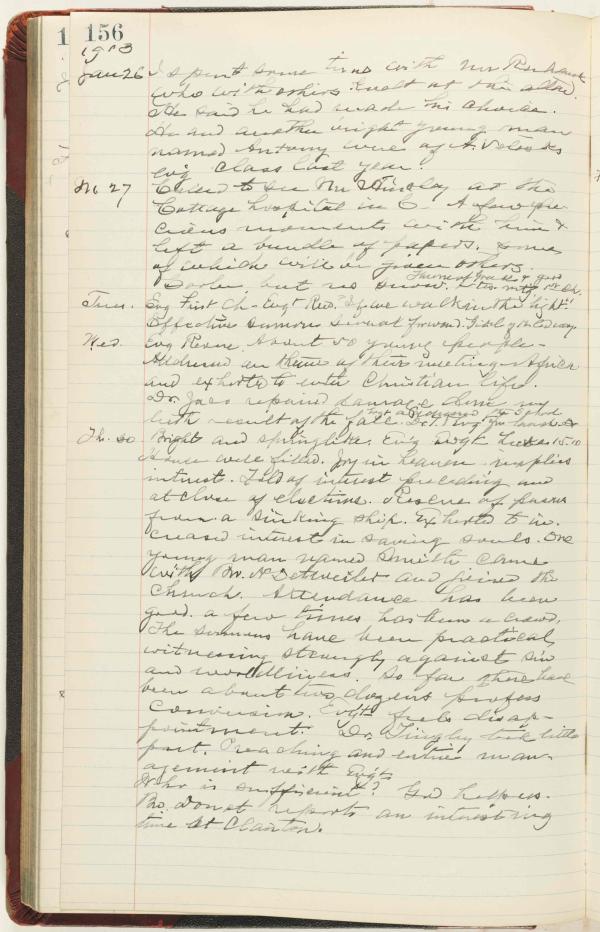 156
1913
Jan 26 I spent some time with Mr
who with others knelt at the altar.
He said he had made his choice.
He and another bright young man
named Antony were of A.
class last year.
M. 27 Called to see Mr at the
Cottage hospital in C. A few pre-
cious moments with him &
left a bundle of papers, some
of which will be given others.
Cooler, but no snow.
Tues. Evg First Ch - Evgt Rev. "If we walk in the light"
Effective sermon several forward.
Wed. Evg About 50 young people.
Addressed on theme of their meeting - Africa
and exhorted to enter Christian life.
Dr. repaired damage done my
teeth result of the fall.
Th. 30 Bright and springlike. Evg Evgt Luke 15.10
House well filled. Joy in heaven implies
interest. Told of interest preceding and
at close of elections. Rescue of
from a sinking ship. Exhorted to in-
creased interest in saving souls. One
young man named Smith came
with Bro. N Detweiler and joined the
Church. Attendance has been
good. a few times has been a crowd.
The sermons have been practical,
witnessing strongly against sin
and worldliness. So far there have
been about two dozens profess
conversion. Evgt feels disap-
pointment. Dr. Tingley took little
part. Preaching and entire man-
agement with Evgts
Who is sufficient? God help us.
Bro. reports an interesting
time at Clairton.